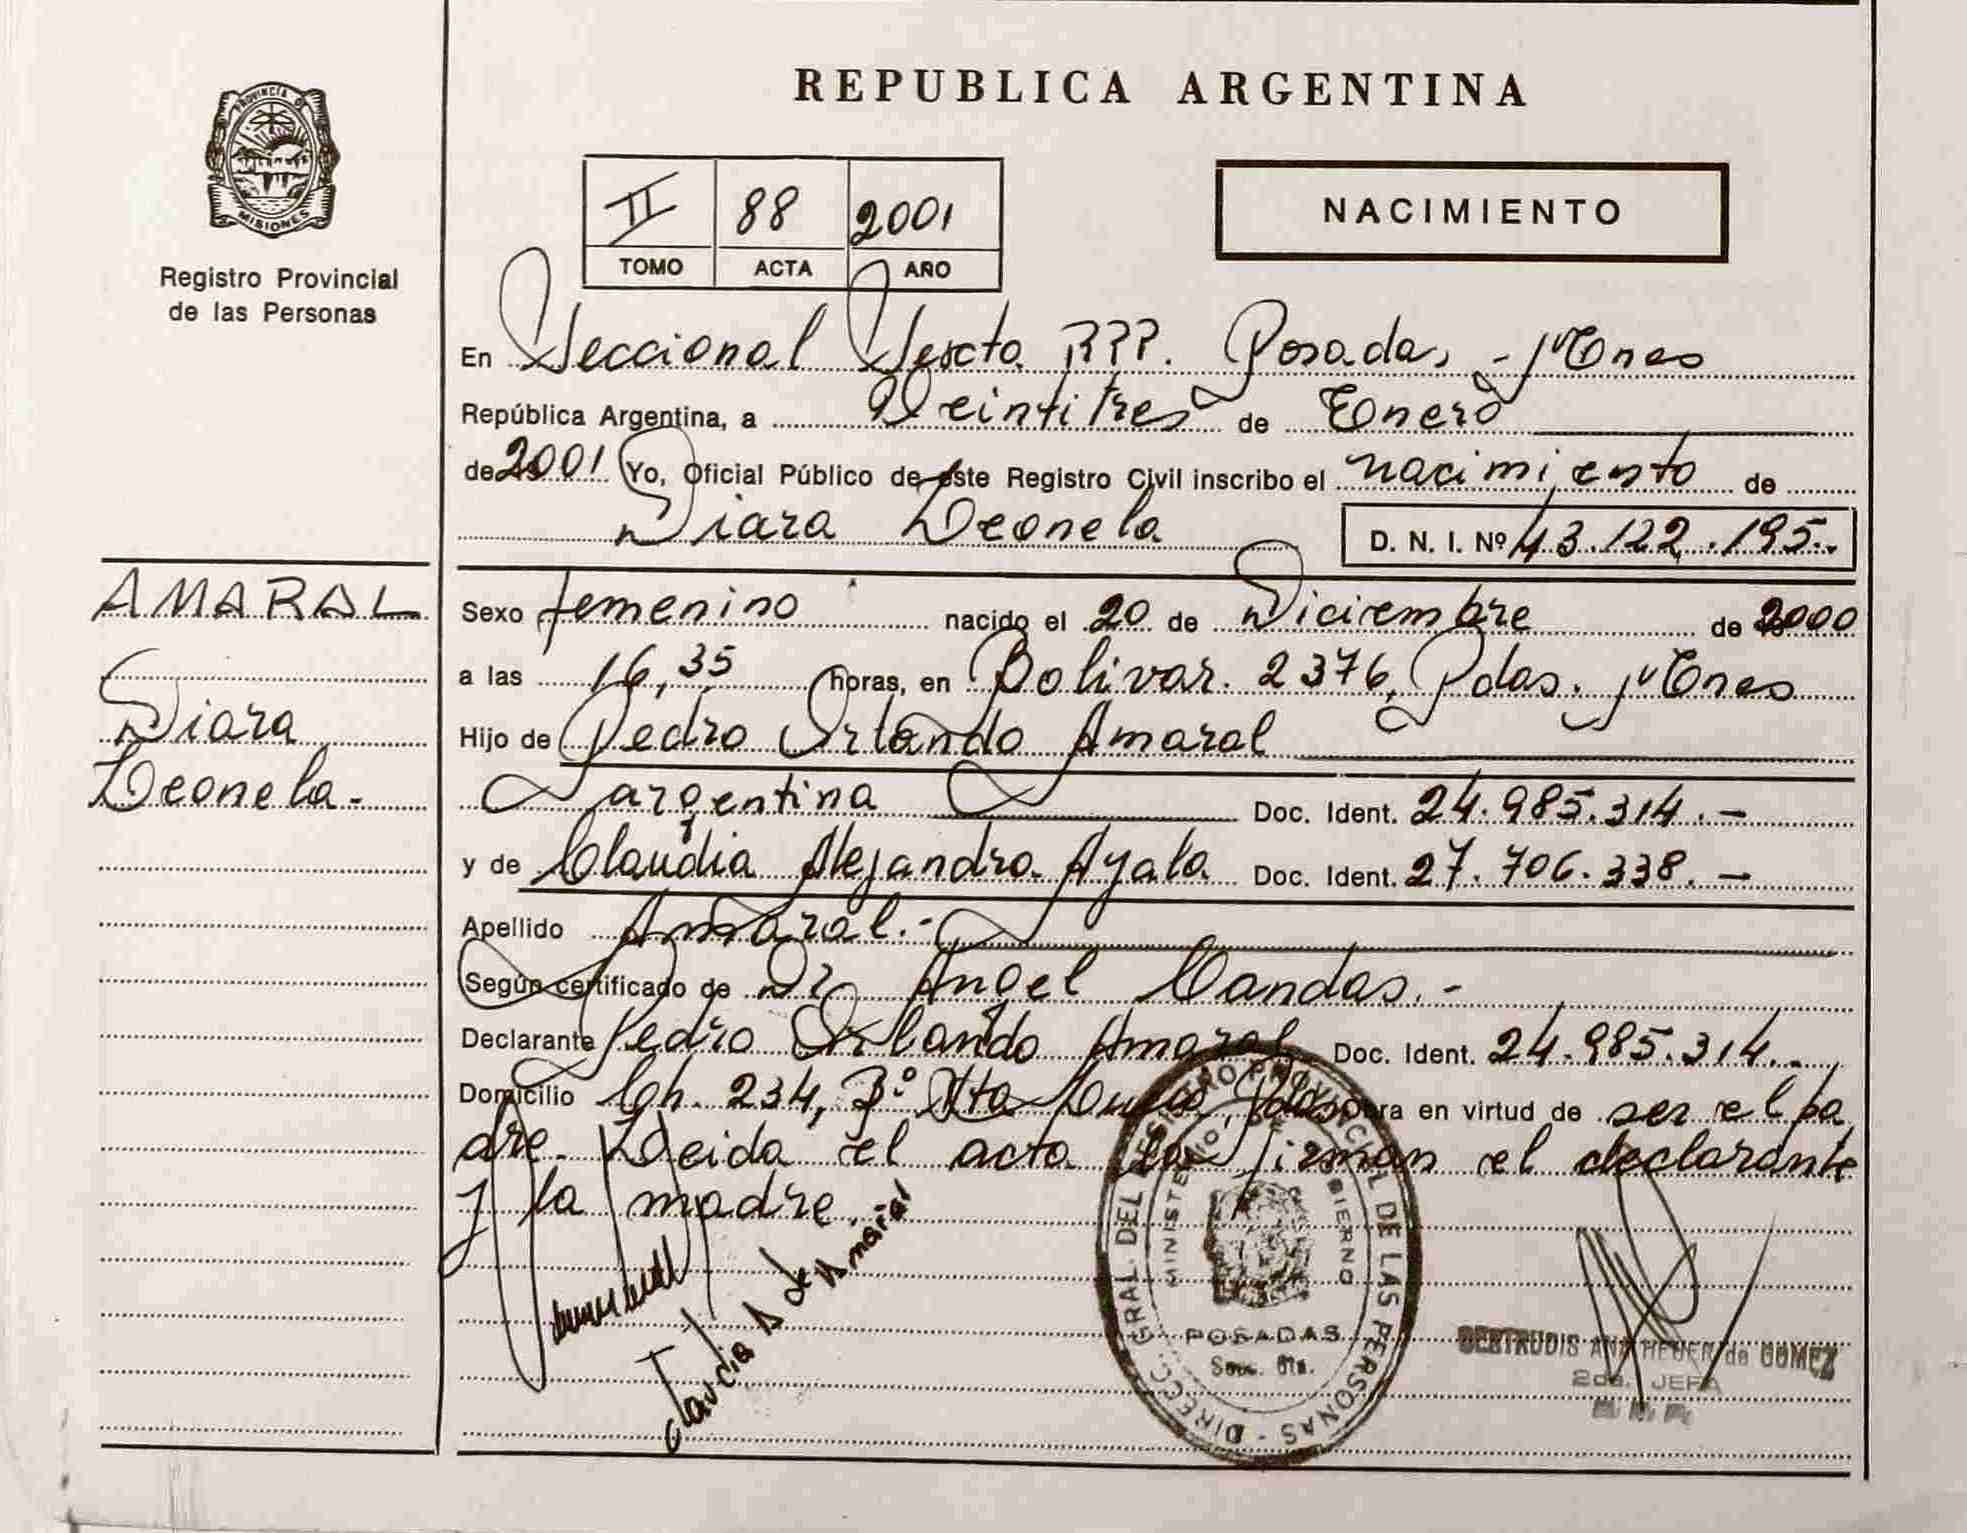 REPUBLICA ARGENTINA
PROVINCIA DE
MISIONES
Registro Provincial
de las Personas
II 88 2001
TOMO ACTA AÑO
NACIMIENTO
En Seccional Sexta RPP. Posadas, - Mnes
República Argentina, a Veintitres de Enero
de 2001 Yo, Oficial Público de este Registro Civil inscribo el nacimiento de
Diara Leonela D. N. I. Nº 43.122.195.-
AMARAL
Diara
Leonela.-
Sexo femenino nacido el 20 de Diciembre de 2000
a las 16,35 horas, en Bolivar. 2376, Pdas. Mnes
Hijo de Pedro Orlando Amaral
argentina Doc. Ident. 24.985.314.-
y de Claudia Alejandra Ayala Doc. Ident. 27.706.338.-
Apellido Amaral.-
Según certificado de Dr Angel Candas.-
Declarante Pedro Orlando Amaral Doc. Ident. 24.985.314.-
Domicilio Ch. 234, Bº Pdas. Obra en virtud de ser el pa
dre. Leida el acta la firman el declarante
y la madre.
Claudia A de Amaral
DIRECC. GRAL. DEL REGISTRO PROVINCIAL DE LAS PERSONAS
MINISTERIO DE GOBIERNO
POSADAS
Secc. 6ta.
GERTRUDIS ANA de GOMEZ
2da. JEFA